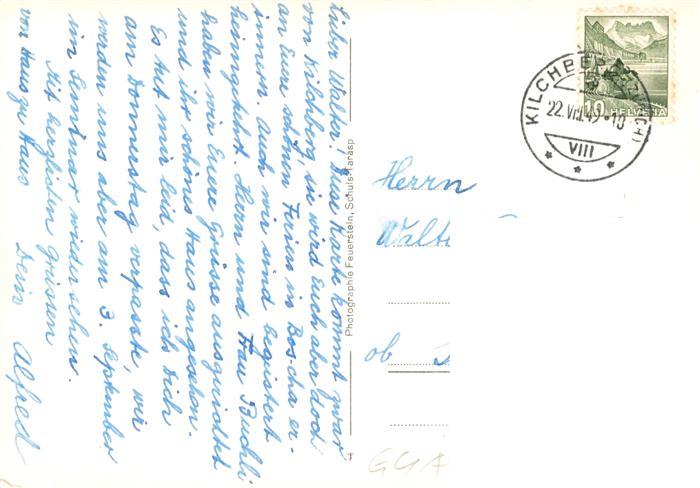 Lieber Walter! Diese Karte kommt zwar
von Kilchberg, sie wird Euch aber doch
an Eure schönen Ferien in Bos-cha er-
innern. Auch wir sind begeistert
heimgekehrt. Herrn und Frau Buchli
haben wir Eure Grüsse ausgerichtet
und ihr schönes Haus angesehen.
Es tut mir leid, dass ich Dich
am Donnerstag verpasste, wir
werden uns aber am 3. September
im Seminar wieder sehen.
Mit herzlichen Grüssen
von Haus zu Haus
Dein Alfred
Photographie Feuerstein, Schuls-Tarasp
KILCHBERG (ZÜRICH)
22.VIII.49.-10
VIII
10 HELVETIA
Herrn
Walte
ob
GGA